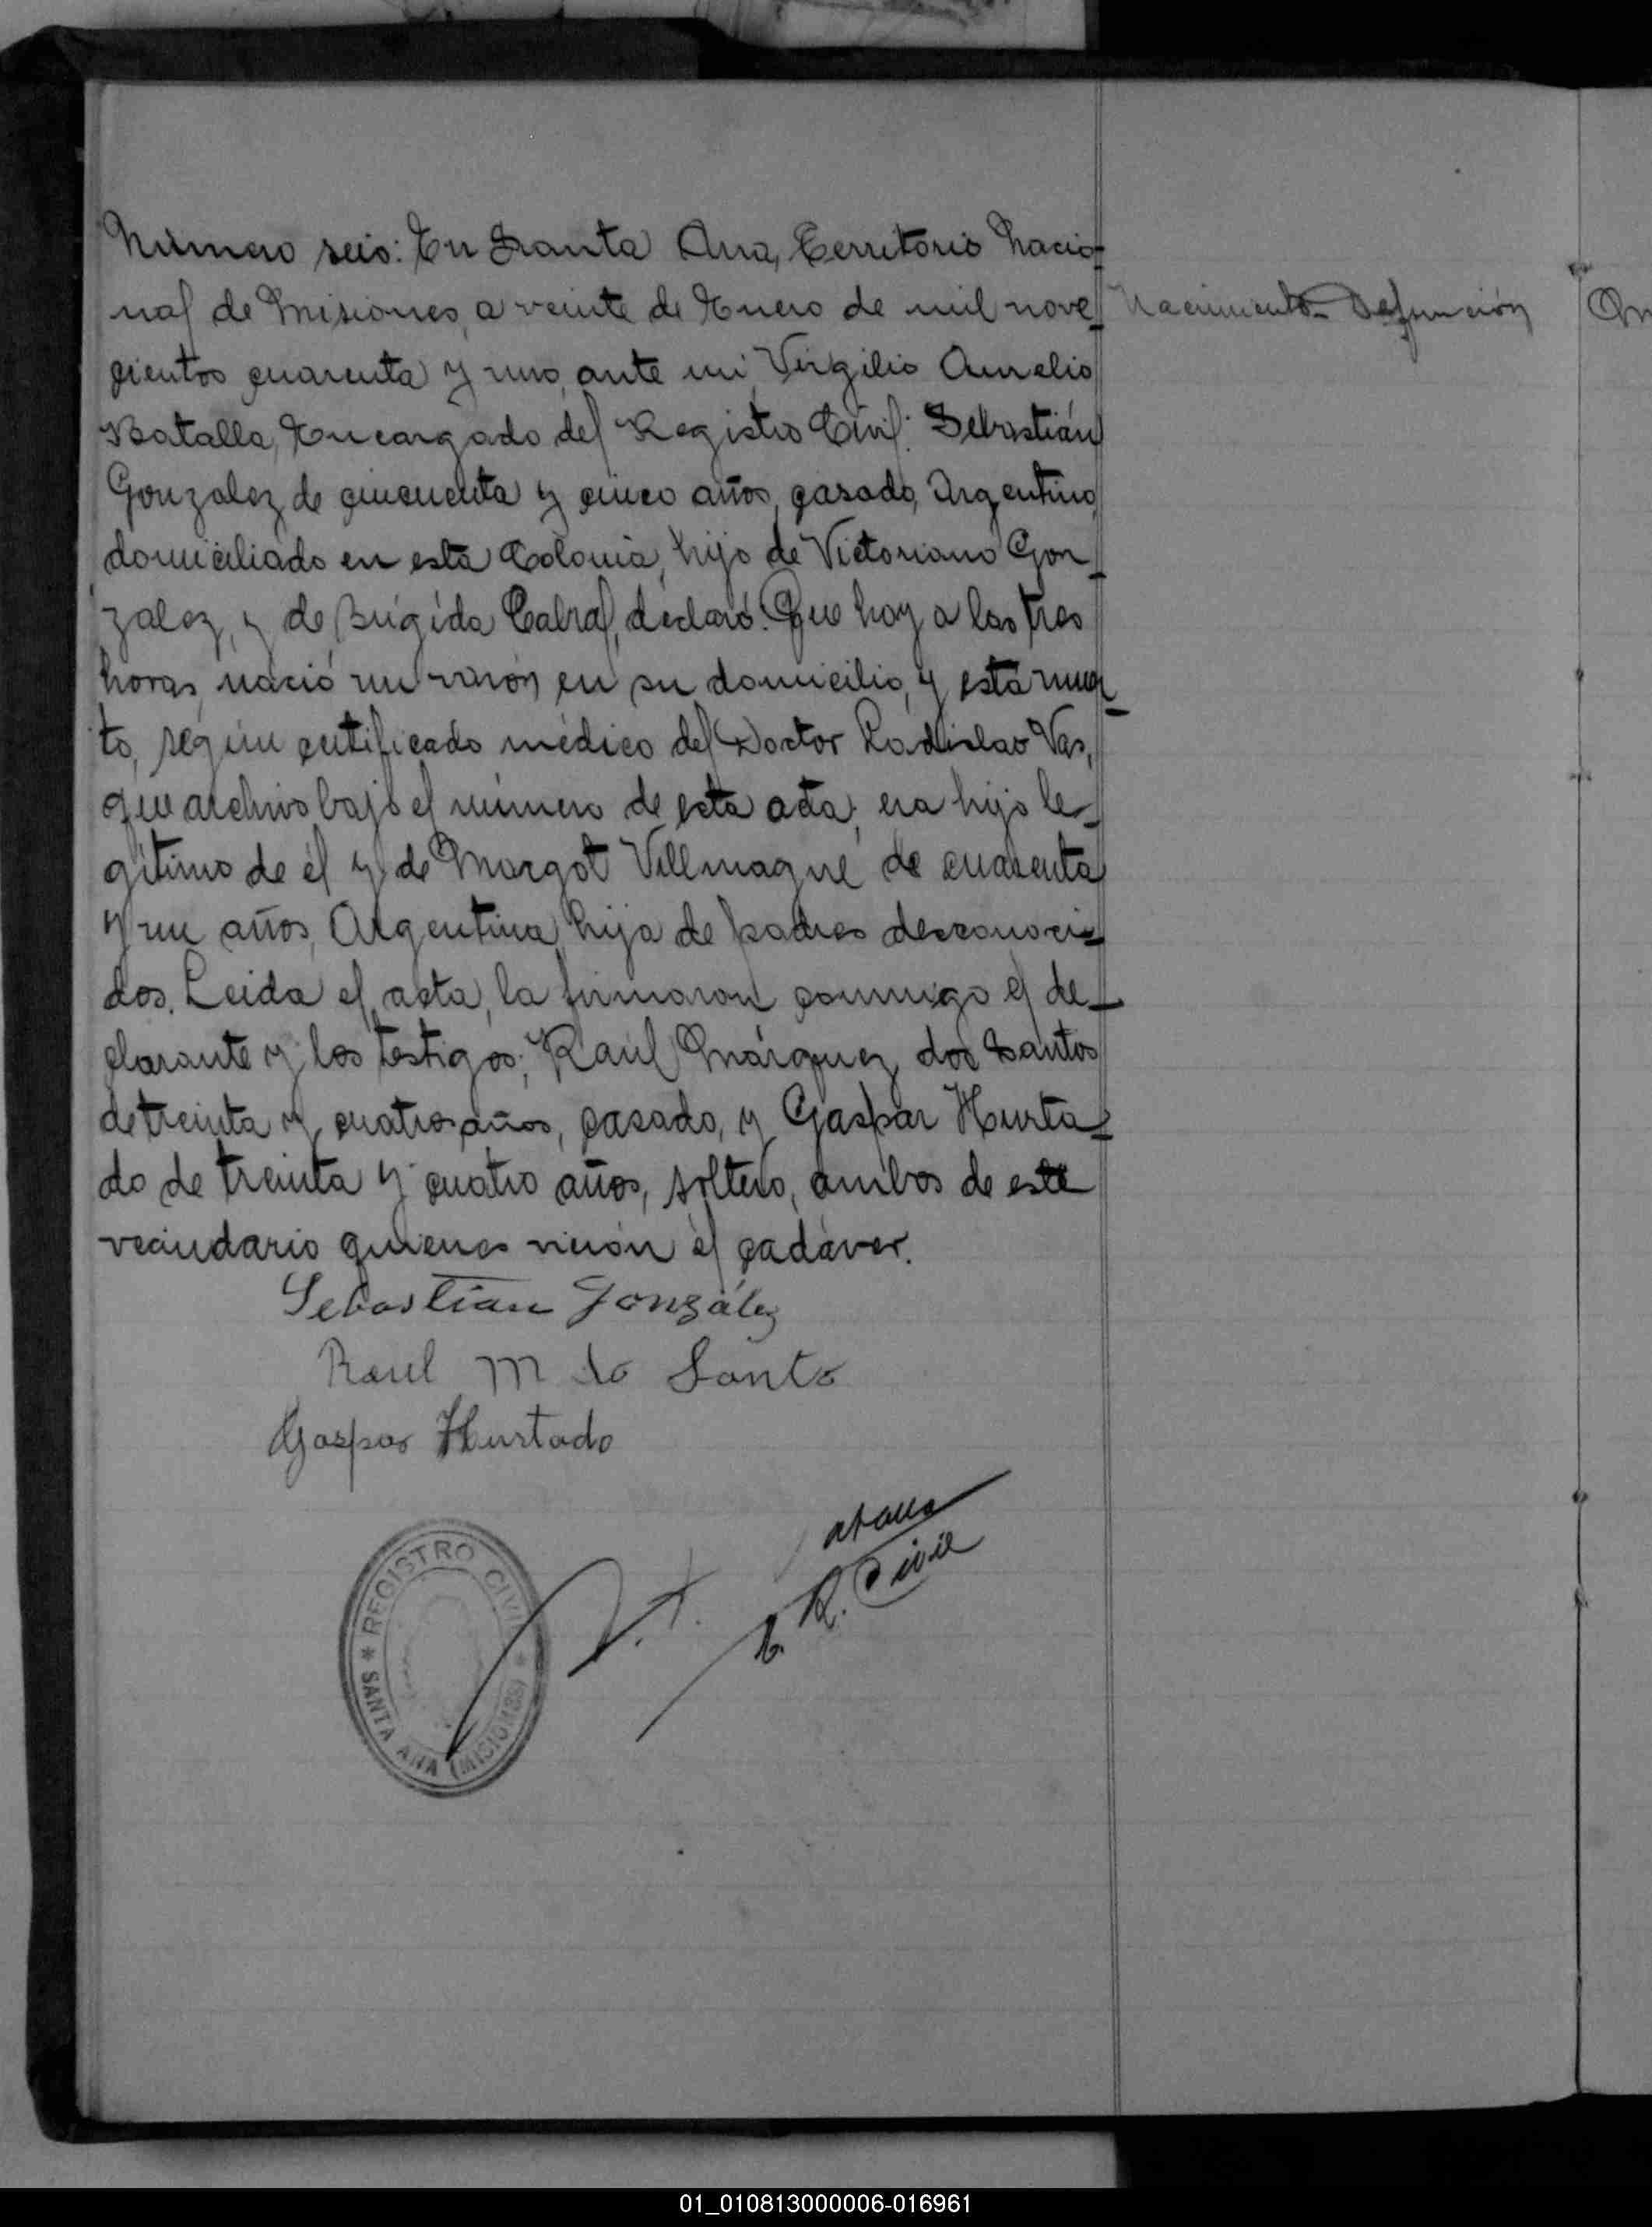 Número seis: En Santa Ana, Territorio Nacio-
nal de Misiones, a veinte de Enero de mil nove-
cientos cuarenta y uno, ante mi, Virgilio Aurelio
Batalla, Encargado del Registro Civil: Sebastián
Gonzalez, de cincuenta y cinco años, casado, Argentino,
domiciliado en esta Colonia, hijo de Victoriano Gon-
zalez, y de Brígida Cabral, declaró: Que hoy a las tres
horas, nació un varón en su domicilio, y está muer-
to, según certificado médico del Doctor Ladislao Vas,
que archivo bajo el número de esta acta, era hijo le-
gítimo de él y de Margot Villmagne de cuarenta
y un años, Argentina, hija de padres desconoci-
dos. Leida el acta, la firmaron conmigo el de-
clarante y los testigos; Raúl Márquez dos Santos
de treinta y cuatro años, casado, y Gaspar Hurta-
do de treinta y cuatro años, soltero, ambos de este
vecindario quienes vieron el cadáver.
Nacimiento - Defunción
Sebastian González
Raul M do Santo
Gaspar Hurtado
R. Civil
REGISTRO CIVIL
* SANTA ANA (MISIONES) *
01_010813000006-016961